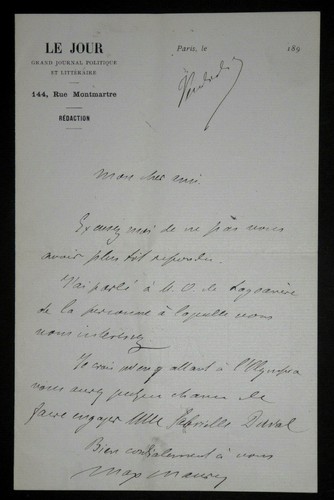 LE JOUR
GRAND JOURNAL POLITIQUE
ET LITTÉRAIRE
144, Rue Montmartre
RÉDACTION
Paris, le 189
Vendredi
Mon cher ami.
Excusez moi de ne pas vous
avoir plus tôt répondu.
J'ai parlé à M. de
de la personne à laquelle vous
vous intéressez
Je crois qu'en allant à l'Olympia
vous aurez chance de
faire engager Mlle Gabrielle Duval
Bien cordialement à vous
Max Maurey